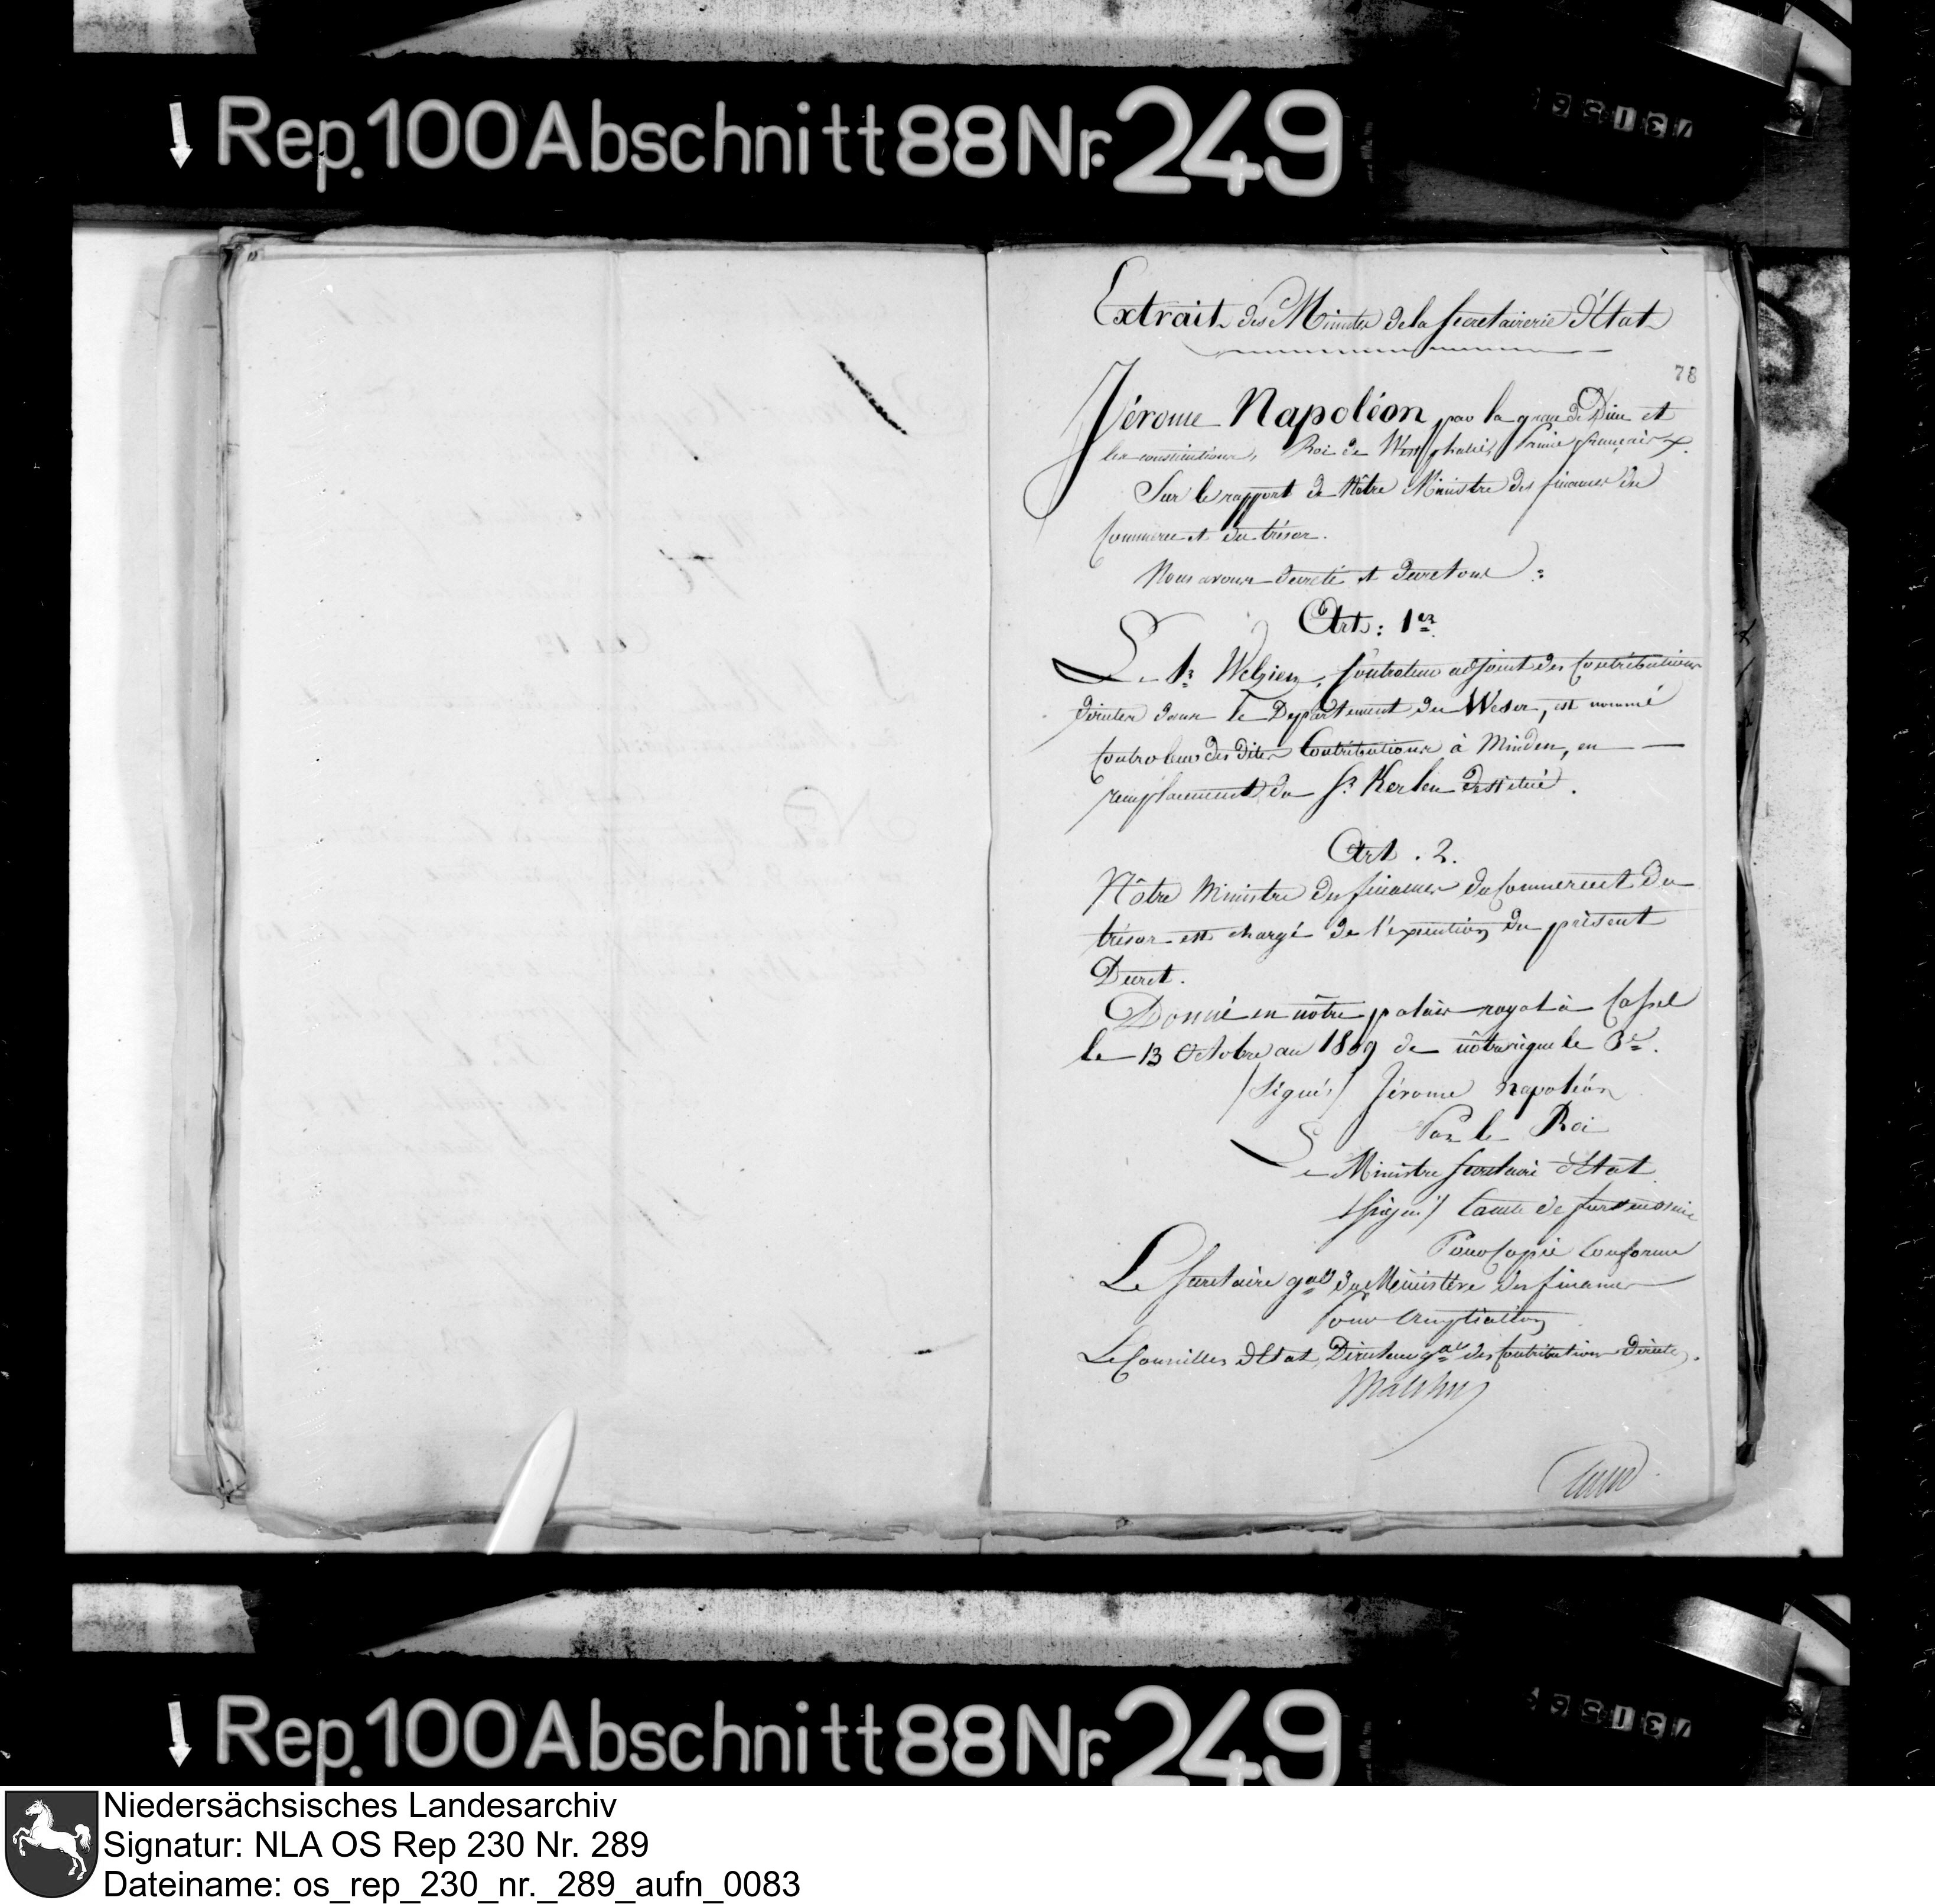 Rep. 100 Abschnitt 88 Nr. 249
Extrait des Minutes de la Secretairerie d'Etat
78
Jérome Napoléon par la grace de Dieu et
les constitutions, Roi de Westphalie, Prince français &.
Sur le rapport de Nôtre Ministre des finances du
Commerce et du trésor.
Nous avons decreté et decretons :
Art: 1er
Le Sr Welzien, Controleur adjoint des Contributions
directes dans le Département du Weser, est nommé
Controleur des dites Contributions à Minden, en
remplacement du Sr Kerlen destitué.
Art. 2.
Nôtre Ministre des finances du Commerce et du
trésor est chargé de l'exécution du présent
Decret.
Donné en nôtre palais royal à Cassel
le 13 Octobre an 1809 de nôtre règne le 3e.
/Signé:/ Jérome Napoléon
Par le Roi
Le Ministre Secretaire d'Etat
/Signé:/ Comte de Furstenstein
Pour Copie Conforme
Le Secretaire gal du Ministère des finances
Pour Ampliation
Le Conseiller d'Etat, Directeur gal des Contributions Directes.
Malchus
Rep. 100 Abschnitt 88 Nr. 249
Niedersächsisches Landesarchiv
Signatur: NLA OS Rep 230 Nr. 289
Dateiname: os_rep_230_nr._289_aufn_0083